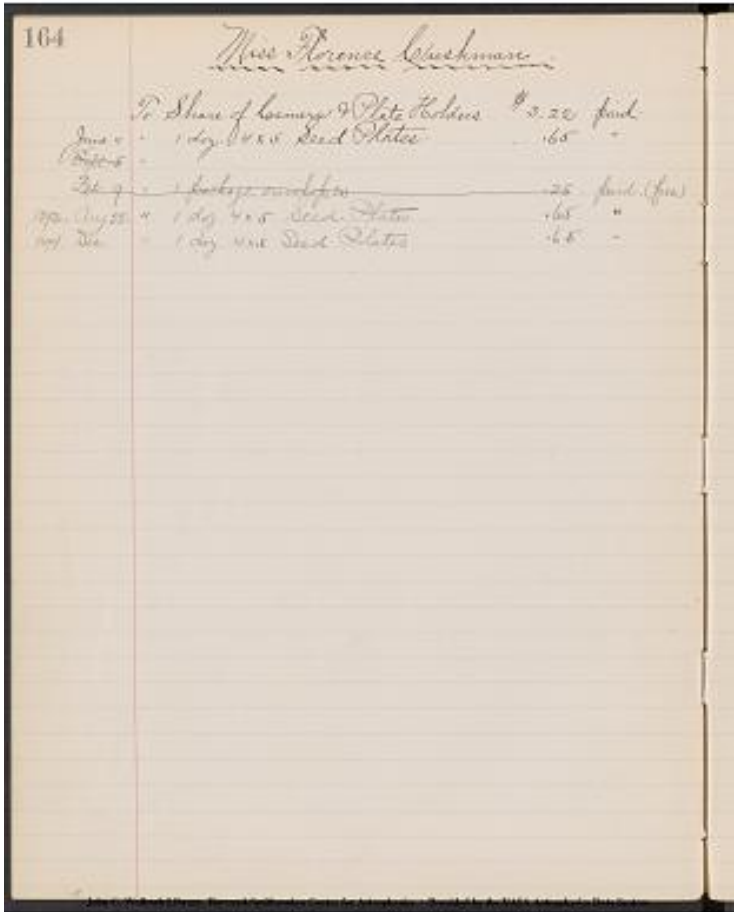 164
Miss Florence Cushman
To Share of Camera & Plate Holders $3.22 paid
June 4 " 1 doz 4x5 Seed Plates .65 "
"
Feb 9 " 1 package envelopes .25 paid (free)
Aug 25 " 1 doz 4x5 Seed Plates .65 "
Dec " 1 doz 4x5 Seed Plates .65 "